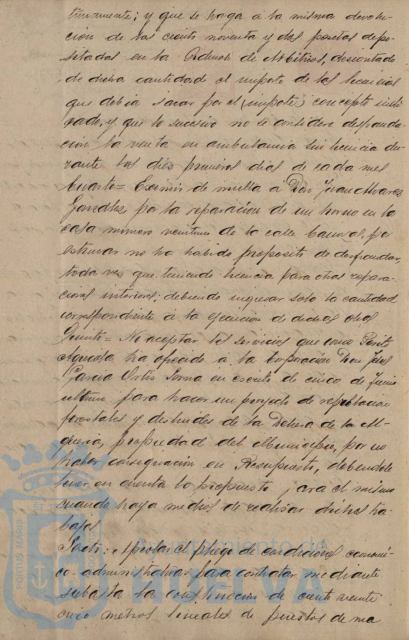 tinuamente; y que se haga a la misma devolu-
cion de las ciento noventa y dos pesetas depo-
sitadas en la Admon de Arbitrios, descontado
de dicha cantidad el importe de las licencias
que debia sacar por el (importe) concepto indi-
cado, y que lo sucesivo no se considere defrauda-
cion la venta en ambulancia sin licencia du-
rante los diez primeros dias de cada mes
Cuarto= Eximir de multa a Don Juan Alvarez
Gonzalez por la reparacion de un horno en la
casa numero veintiuno de la calle por
estimar no ha habido proposito de defraudar,
toda vez que teniendo licencia para otras repara-
ciones interiores; debiendo ingresar solo la cantidad
correspondiente á la ejecucion de dichas obras
Quinto= No aceptar los servicios que como Perito
Agricola ha ofrecido á la Corporacion Don José
Garcia Ortiz en escrito de cinco de Junio
ultimo para hacer un proyecto de repoblacion
forestales y deslindes de la Dehesa de la Al-
gaida, propiedad del Municipio, por no
haber consignacion en Presupuesto, debiendose
tener en cuenta lo propuesto para el mismo
cuando haya medios de realizar dichos tra-
bajos
Sexto: Aprobar el pliego de condiciones economi-
co-administrativas para contratar mediante
subasta la construccion de ciento veinte
cinco metros lineales de puestos de ma